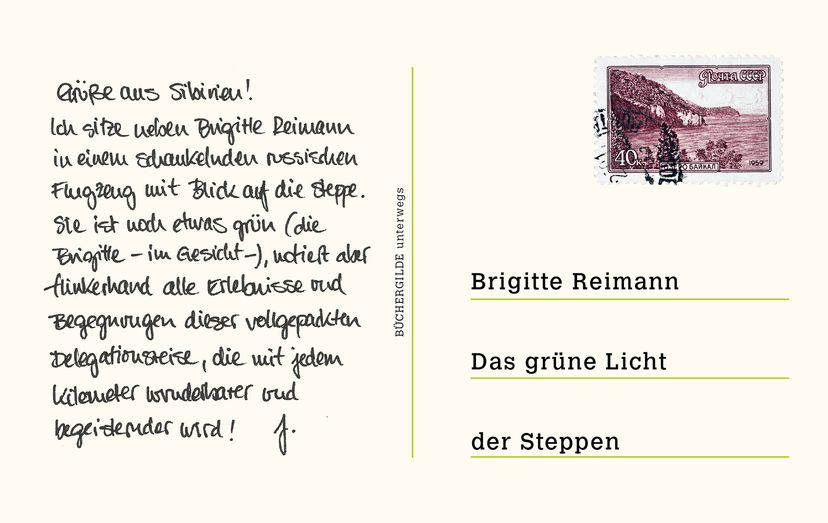 Grüße aus Sibirien!
Ich sitze neben Brigitte Reimann
in einem schaukelnden russischen
Flugzeug mit Blick auf die Steppe.
Sie ist noch etwas grün (die
Brigitte – im Gesicht –), notiert aber
flinkerhand alle Erlebnisse und
Begegnungen dieser vollgepackten
Delegationsreise, die mit jedem
Kilometer wunderbarer und
begeisternder wird! J.
BÜCHERGILDE unterwegs
ПОЧТА СССР
40к
ОЗЕРО БАЙКАЛ
1959
Brigitte Reimann
Das grüne Licht
der Steppen